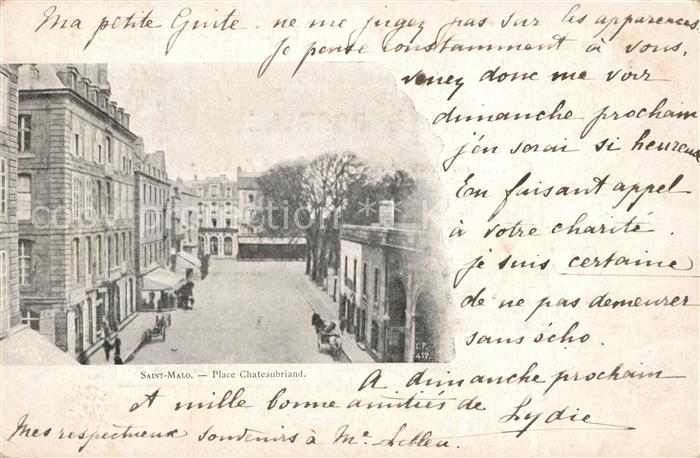 Ma petite Guite. ne me jugez pas sur les apparences.
Je pense constamment à vous,
venez donc me voir
dimanche prochain
j'en serai si heureuse
En faisant appel
à votre charité.
je suis certaine
de ne pas demeurer
sans écho.
C.P.
417
SAINT-MALO. — Place Chateaubriand.
A dimanche prochain
A mille bonne amitiés de
Lydie
Mes respectueux souvenirs à Me